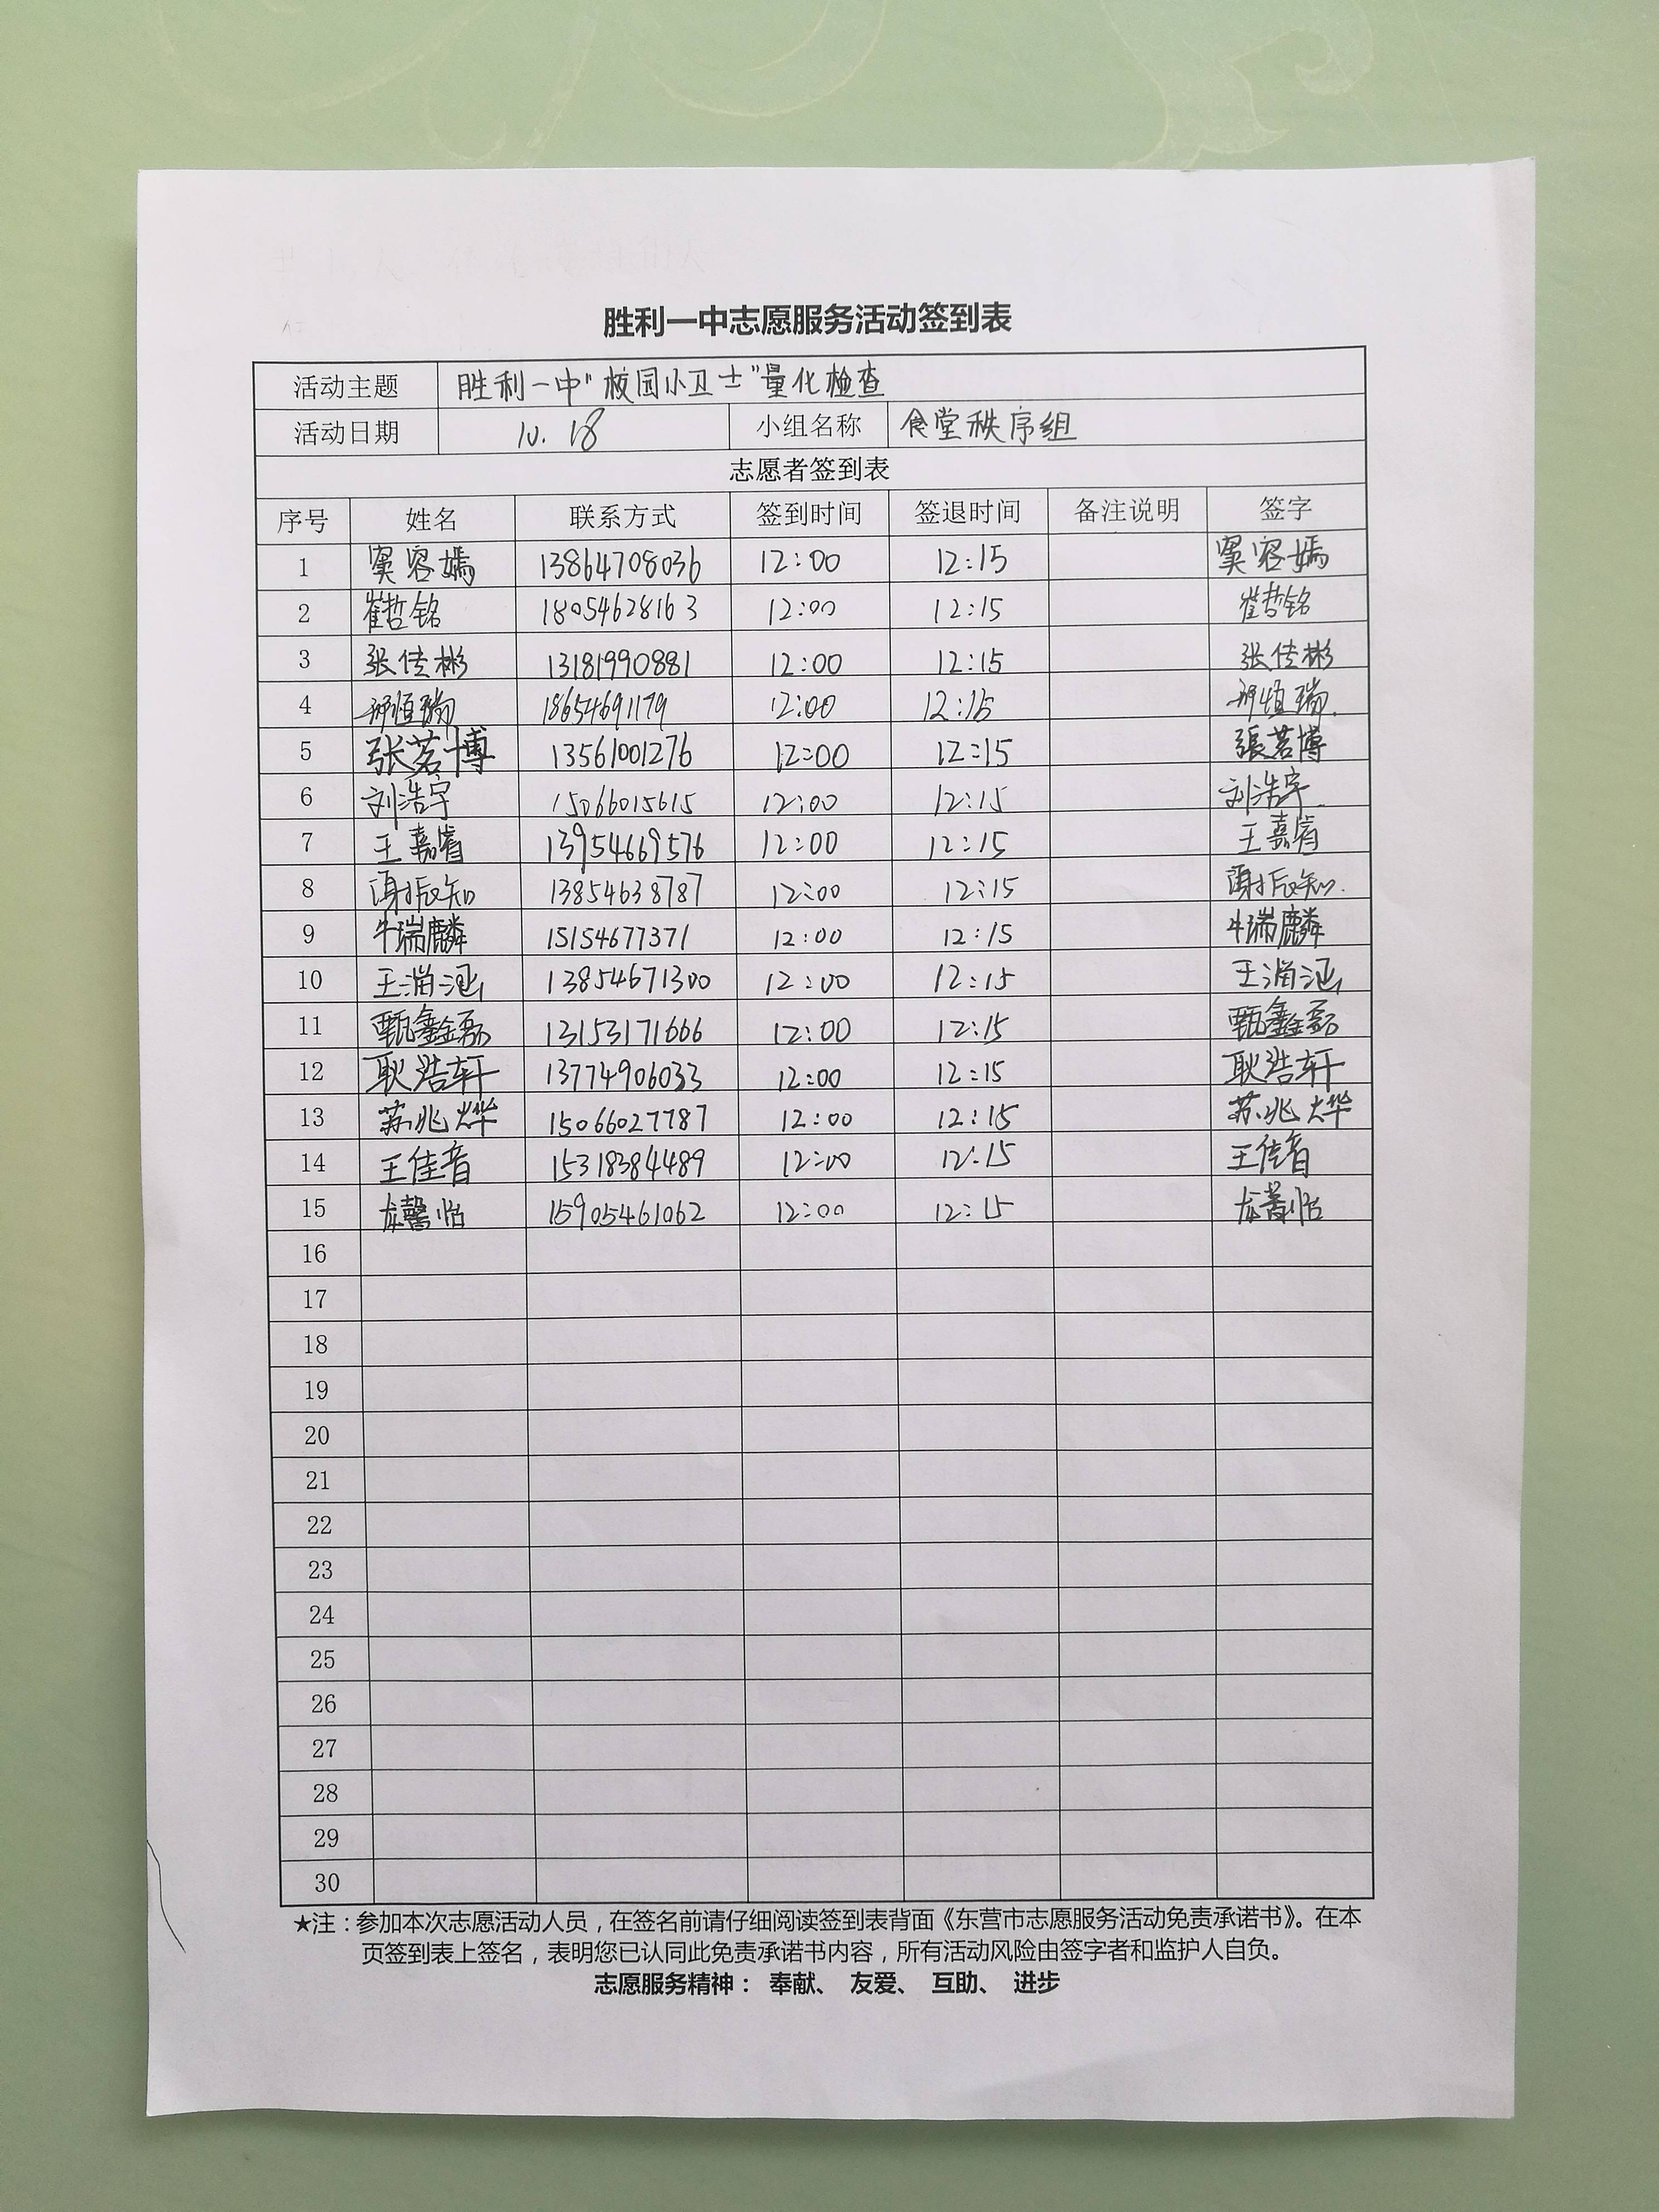 胜利一中志愿服务活动签到表
活动主题 胜利一中"校园小卫士"量化检查
活动日期 10.18 小组名称 食堂秩序组
志愿者签到表
序号 姓名 联系方式 签到时间 签退时间 备注说明 签字
1 窦容嫣 13864708036 12:00 12:15 窦容嫣
2 崔哲铭 18054628163 12:00 12:15 崔哲铭
3 张传彬 13181990881 12:00 12:15 张传彬
4 18654691179 12:00 12:15
5 张茗博 13561001276 12:00 12:15 張茗博
6 刘浩宇 15066015615 12:00 12:15 刘浩宇
7 王嘉睿 13954669576 12:00 12:15 王嘉睿
8 13854638787 12:00 12:15
9 牛瑞麟 15154677371 12:00 12:15 牛瑞麟
10 13854671300 12:00 12:15
11 甄鑫磊 13153171666 12:00 12:15 甄鑫磊
12 耿浩轩 13774906033 12:00 12:15 耿浩轩
13 苏兆烨 15066027787 12:00 12:15 苏兆烨
14 王佳音 15318384489 12:00 12:15 王佳音
15 龙馨怡 15905461062 12:00 12:15 龙馨怡
16
17
18
19
20
21
22
23
24
25
26
27
28
29
30
★注：参加本次志愿活动人员，在签名前请仔细阅读签到表背面《东营市志愿服务活动免责承诺书》。在本
页签到表上签名，表明您已认同此免责承诺书内容，所有活动风险由签字者和监护人自负。
志愿服务精神： 奉献、 友爱、 互助、 进步